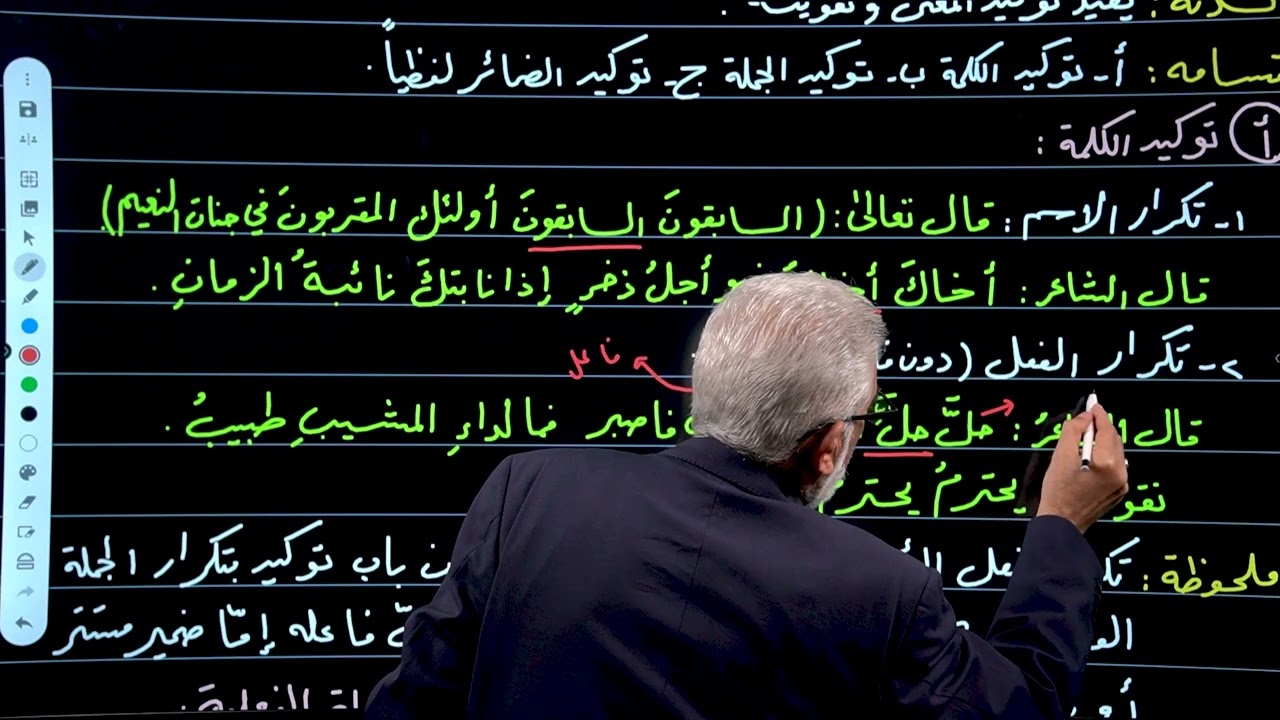 يفيد توكيد المعنى وتقويت
أ- توكيد الكلمة ب- توكيد الجملة ج- توكيد الضمائر لفظياً .
أ توكيد الكلمة :
١- تكرار الاسم : قال تعالى : (السابقونَ السابقونَ أولئك المقربونَ في جنات النعيم)
قال الشاعر : أخاكَ أجلُ ذخرٍ إذا نابتكَ نائبةُ الزمانِ .
٢- تكرار الفعل (دون
فاعل
قال : حلَّ حلَّ فاصبر فما لداءِ المشيبِ طبيبُ .
يحترمُ يحترمُ
ملحوظة : باب توكيد بتكرار الجملة
فاعله إمّا ضمير مستتر